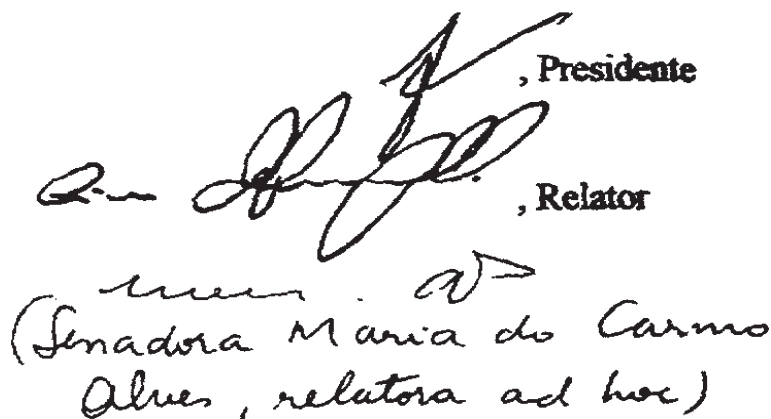 , Presidente
, Relator
(Senadora Maria do Carmo
Alves, relatora ad hoc)